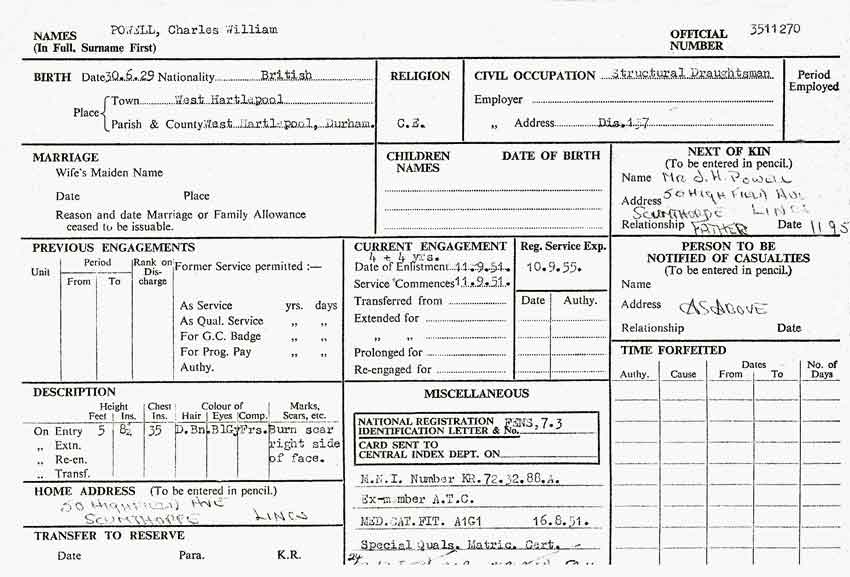 NAMES POWELL, Charles William OFFICIAL NUMBER 3511270
(In Full, Surname First)
BIRTH Date 30.6.29 Nationality British
Place Town West Hartlepool
Parish & County West Hartlepool, Durham.
RELIGION
C.E.
CIVIL OCCUPATION Structural Draughtsman
Employer
„ Address Dis.157
Period Employed
MARRIAGE
Wife's Maiden Name
Date Place
Reason and date Marriage or Family Allowance
ceased to be issuable.
CHILDREN NAMES DATE OF BIRTH
NEXT OF KIN
(To be entered in pencil.)
Name Mr J.H. Powell
Address 50 HIGHFIELD AVE
SCUNTHORPE LINCS
Relationship FATHER Date 1195
PREVIOUS ENGAGEMENTS
Unit Period Rank on Dis-charge Former Service permitted :—
From To
As Service yrs. days
As Qual. Service „ „
For G.C. Badge „ „
For Prog. Pay „ „
Authy.
CURRENT ENGAGEMENT
4 + 4 yrs.
Date of Enlistment 11.9.51.
Service Commences 11.9.51.
Transferred from
Extended for
„ „
Prolonged for
Re-engaged for
Reg. Service Exp.
10.9.55.
Date Authy.
PERSON TO BE
NOTIFIED OF CASUALTIES
(To be entered in pencil.)
Name
Address AS ABOVE
Relationship Date
TIME FORFEITED
Authy. Cause Dates No. of Days
From To
DESCRIPTION
Height Chest Colour of Marks,
Feet Ins. Ins. Hair Eyes Comp. Scars, etc.
On Entry 5 8½ 35 D.Bn. BlGy Frs. Burn scar
„ Extn. right side
„ Re-en. of face.
„ Transf.
HOME ADDRESS (To be entered in pencil.)
50 HIGHFIELD AVE
SCUNTHORPE LINCS
TRANSFER TO RESERVE
Date Para. K.R.
MISCELLANEOUS
NATIONAL REGISTRATION
IDENTIFICATION LETTER & No. FENS,7.3
CARD SENT TO
CENTRAL INDEX DEPT. ON
M.N.I. Number KR.72.32.88.A.
Ex-member A.T.C.
MED.CAT.FIT. A1G1 16.8.51.
Special Quals. Matric. Cert.
24